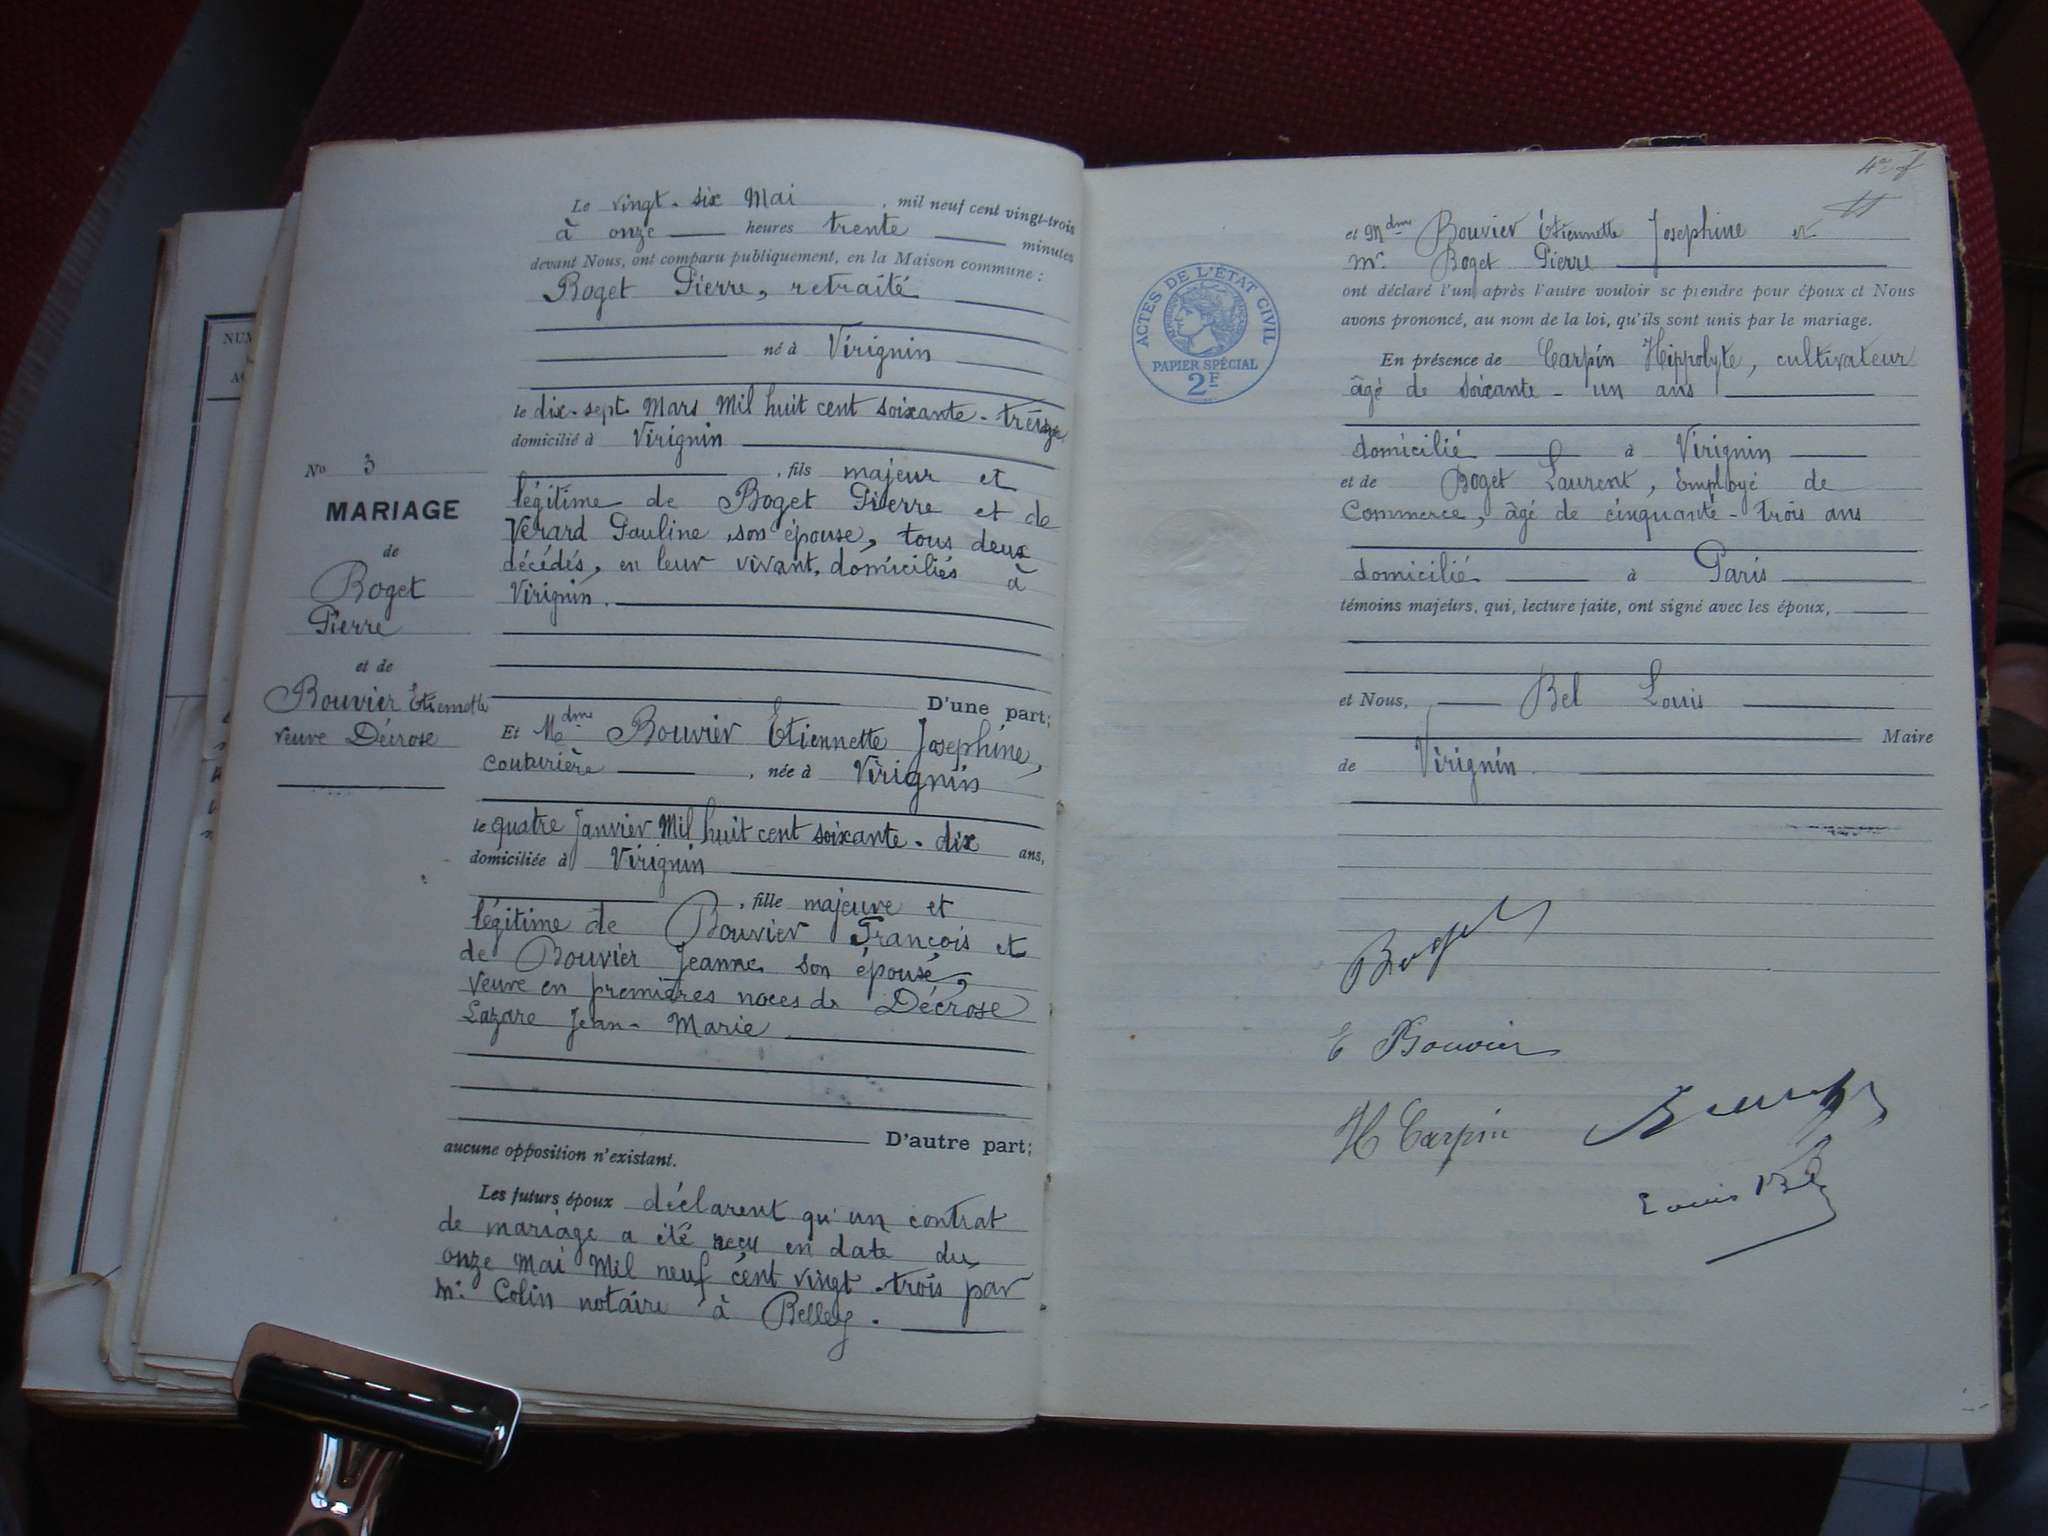 NUM
Le vingt-six Mai, mil neuf cent vingt-trois
à onze heures trente minutes
devant Nous, ont comparu publiquement, en la Maison commune :
Boget Pierre, retraité
né à Virignin
le dix-sept Mars Mil huit cent soixante-treize
domicilié à Virignin
No 3
MARIAGE
de
Boget
Pierre
et de
Bouvier Etiennette
veuve Décrose
, fils majeur et
légitime de Boget Pierre et de
Verard Pauline, son épouse, tous deux
décédés, en leur vivant, domiciliés à
Virignin.
D'une part;
Et Mdme Bouvier Etiennette Josephine,
couturière, née à Virignin
le quatre Janvier Mil huit cent soixante-dix ans,
domiciliée à Virignin
, fille majeure et
légitime de Bouvier François et
de Bouvier Jeanne son épouse,
veuve en premières noces de Décrose
Lazare Jean-Marie
D'autre part;
aucune opposition n'existant.
Les futurs époux déclarent qu'un contrat
de mariage a été reçu en date du
onze Mai Mil neuf cent vingt-trois par
Mr. Colin notaire à Belley.
ACTES DE L'ÉTAT CIVIL
PAPIER SPÉCIAL
2F
et Mdme Bouvier Etiennette Josephine et
Mr. Boget Pierre
ont déclaré l'un après l'autre vouloir se prendre pour époux et Nous
avons prononcé, au nom de la loi, qu'ils sont unis par le mariage.
En présence de Carpin Hippolyte, cultivateur
âgé de soixante-un ans
domicilié à Virignin
et de Boget Laurent, Employé de
Commerce, âgé de cinquante-trois ans
domicilié à Paris
témoins majeurs, qui, lecture faite, ont signé avec les époux,
et Nous, Bel Louis
Maire
de Virignin.
Boget
E Bouvier
H Carpin
Louis Bel